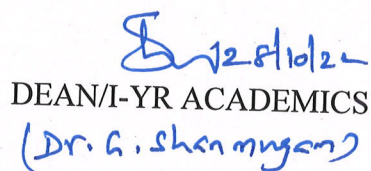 28/10/22
DEAN/I-YR ACADEMICS
(Dr. G. Shanmugam)